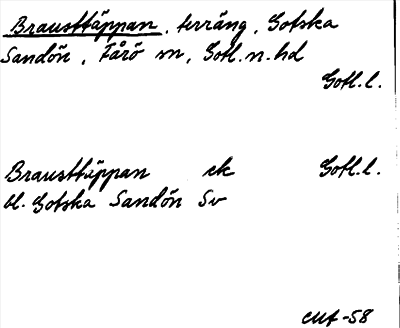 Brausttäppan, terräng, Gotska
Sandön, Fårö sn, Gotl. n. hd
Gotl. l.
Brausttäppan ek Gotl. l.
bl. Gotska Sandön Sv
CMf -58